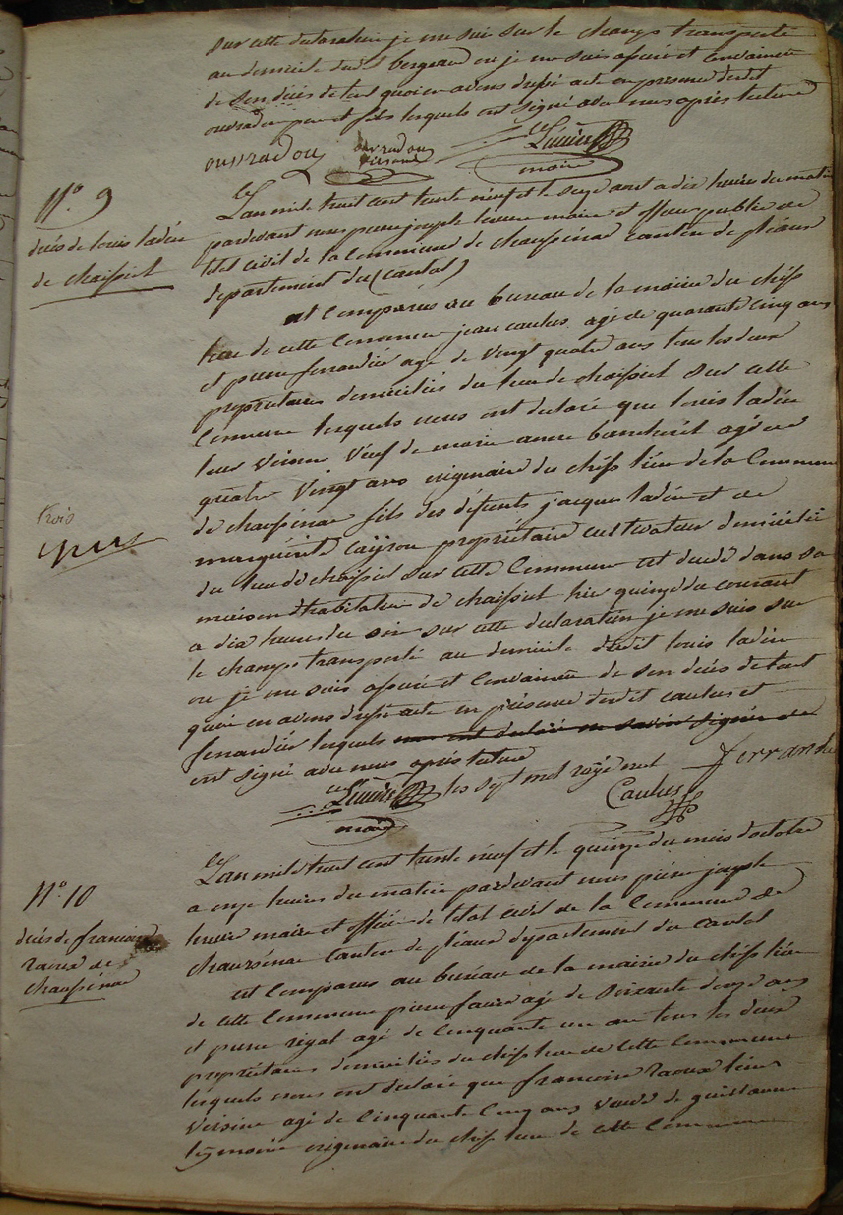 sur cette declaration je me suis sur le champs transporté
au domicile dudit bergeron ou je me suis assuré et convaincu
de son décés de tout quoi en avons dressé acte en presence dudit
ouvradou pere et fils lesquels ont signé avec nous après lecture
ouvradou ouvradou Lemière
maire
N° 9
décés de louis ladén
de chaissiol
L'an mile huit cent trente neuf et le seize aout a dix heures du matin
pardevant nous pierre joseph maire et officier public de
l'état civil de la Commune de chaussenac canton de pléaux
departement du (cantal)
est comparu au bureau de la mairie du chef
lieu de cette Commune jean caulus agé de quarante cinq ans
et pierre ferrandie agé de vingt quatre ans tous les deux
proprietaires domiciliés du lieu de chaissiol sur cette
Commune lesquels nous ont declaré que louis ladén
leur voisin veuf de marie anne agé de
quatre vingt ans originaire du chef lieu de la Commune
de chaussenac fils des défunts jacques ladén et de
marguerite cayrou propriétaire cultivateur domicilié
du lieu de chaissiol sur cette Commune est decedé dans sa
maison d'habitation de chaissiol hier quinze du courant
a dix heures du soir sur cette declaration je me suis sur
le champs transporté au domicile dudit louis ladén
ou je me suis assuré et convaincu de son décés de tout
quoi en avons dressé acte en présence desdit caulus et
ferrandie lesquels nous ont declaré ne savoir signer de
ont signé avec nous après lecture
les sept mot rayé nul ferrandie
maire Caulus
trois
N° 10
décés de francoise
raoux de
chaussenac
L'an mile huit cent trente neuf et le quinze du mois d'octobre
a onze heures du matin pardevant nous pierre joseph
maire et officier de l'état civil de la Commune de
chaussenac Canton de pléaux departement du Cantal
est Comparus au bureau de la mairie du chef lieu
de cette Commune pierre faure agé de soixante douze ans
et pierre rigal agé de Cinquante un an tous les deux
proprietaires domiciliés du chef lieu de cette Commune
lesquels nous ont declaré que francoise raoux leur
voisine agé de Cinquante Cinq ans veuve de guillaume
originaire du chef lieu de cette Commune